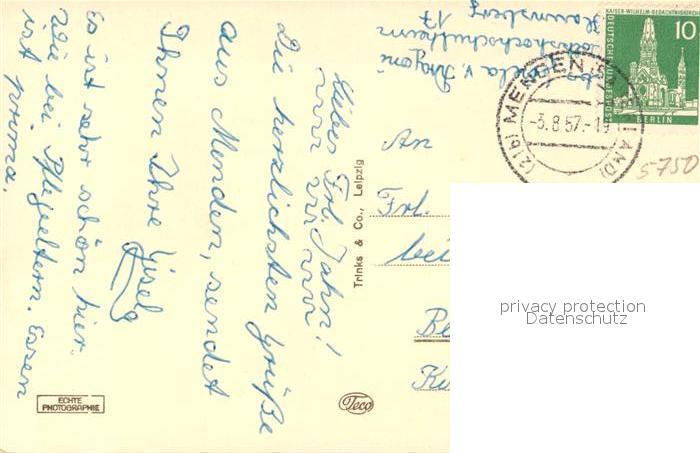 Liebes Frl. Jahn!
Die herzlichsten Grüße
aus Menden, sendet
Ihnen Ihre Gisela
Es ist sehr schön hier.
Wie bei Pflegeeltern. Essen
ist prima.
v. Aragoni
Volkshochschulheim
17
An
Frl.
bei
Be
Trinks & Co., Leipzig
ECHTE
PHOTOGRAPHIE
Teco
KAISER-WILHELM-GEDÄCHTNISKIRCHE
DEUTSCHE BUNDESPOST
10
BERLIN
(21b) MENDEN LAND)
-3.8.57.-19
5750
privacy protection
Datenschutz